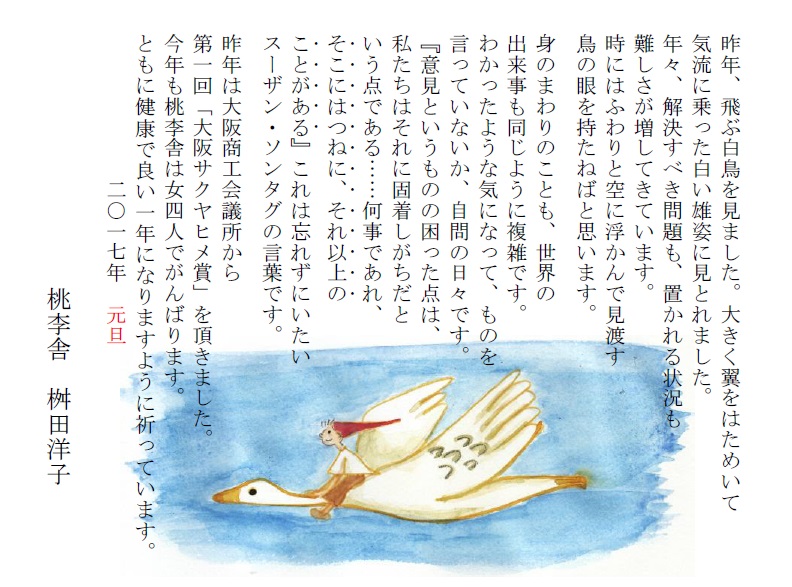 昨年、飛ぶ白鳥を見ました。大きく翼をはためいて
気流に乗った白い雄姿に見とれました。
年々、解決すべき問題も、置かれる状況も
難しさが増してきています。
時にはふわりと空に浮かんで見渡す
鳥の眼を持たねばと思います。
身のまわりのことも、世界の
出来事も同じように複雑です。
わかったような気になって、ものを
言っていないか、自問の日々です。
『意見というものの困った点は、
私たちはそれに固着しがちだと
いう点である……何事であれ、
そこにはつねに、それ以上の
ことがある』これは忘れずにいたい
スーザン・ソンタグの言葉です。
昨年は大阪商工会議所から
第一回「大阪サクヤヒメ賞」を頂きました。
今年も桃李舎は女四人でがんばります。
ともに健康で良い一年になりますように祈っています。
二〇一七年 元旦
桃李舎 桝田洋子